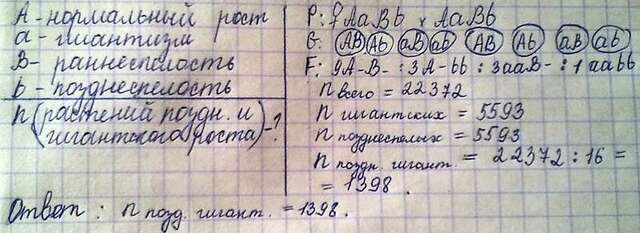 A - нормальный рост
a - гигантизм
B - раннеспелость
b - позднеспелость
n (растений поздн. и гигантского роста) - ?
P: ♀ AaBb × AaBb
G: AB Ab aB ab AB Ab aB ab
F: 9A-B- : 3A-bb : 3aaB- : 1aabb
n всего = 22372
n гигантских = 5593
n позднеспелых = 5593
n поздн. гигант. = 22372 : 16 =
= 1398.
Ответ: n позд. гигант. = 1398.